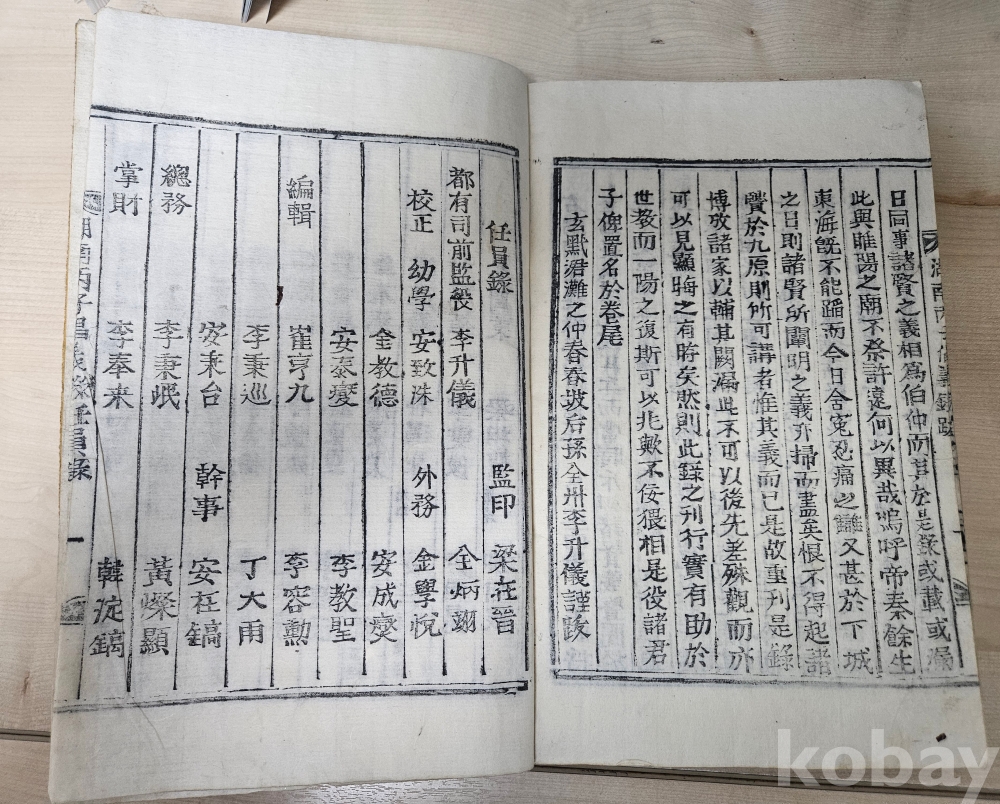 日同事諸賢之義相爲伯仲而其於是彔或載或漏
此與睢陽之廟不祭許遠何以異哉嗚呼帝秦餘生
東海旣不能蹈而今日含寃忍痛之讎又甚於下城
之日則諸賢所闡明之義亦掃而盡矣恨不得起諸
賢於九原則所可講者惟其義而已是故重刊是錄
博攷諸家以輔其闕漏此不可以後先差殊觀而亦
可以見顯晦之有時矣然則此錄之刊行實有助於
世敎而一陽之復斯可以兆歟不佞猥相是役諸君
子俾置名於卷尾
玄黓涒灘之仲春春坡后孫全州李升儀謹跋
任員錄 監印 梁在晉
都有司前監役 李升儀 全炳翊
校正 幼學 安致洙 外務 金學悅
金敎德 安成燮
安泰燮 李敎聖
編輯 崔亨九 李容勳
李秉巡 丁大雨
安秉台 幹事 安在鎬
總務 李秉岷 黃燦顯
掌財 李奉來 韓鎬
湖南丙子昌義錄任員錄 一
kobay